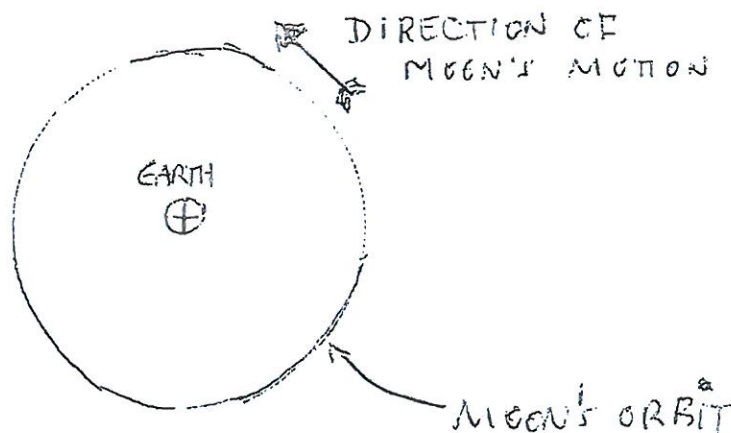 DIRECTION OF
MOON'S MOTION
EARTH
MOON'S ORBIT